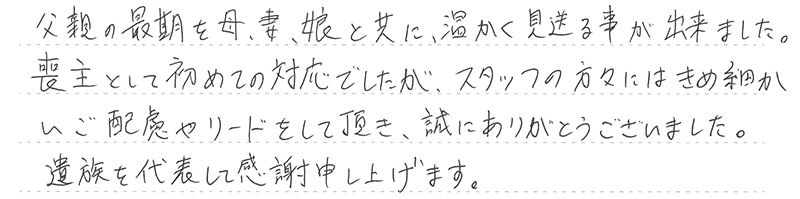 父親の最期を母、妻、娘と共に、温かく見送る事が出来ました。
喪主として初めての対応でしたが、スタッフの方々にはきめ細か
いご配慮やリードをして頂き、誠にありがとうございました。
遺族を代表して感謝申し上げます。